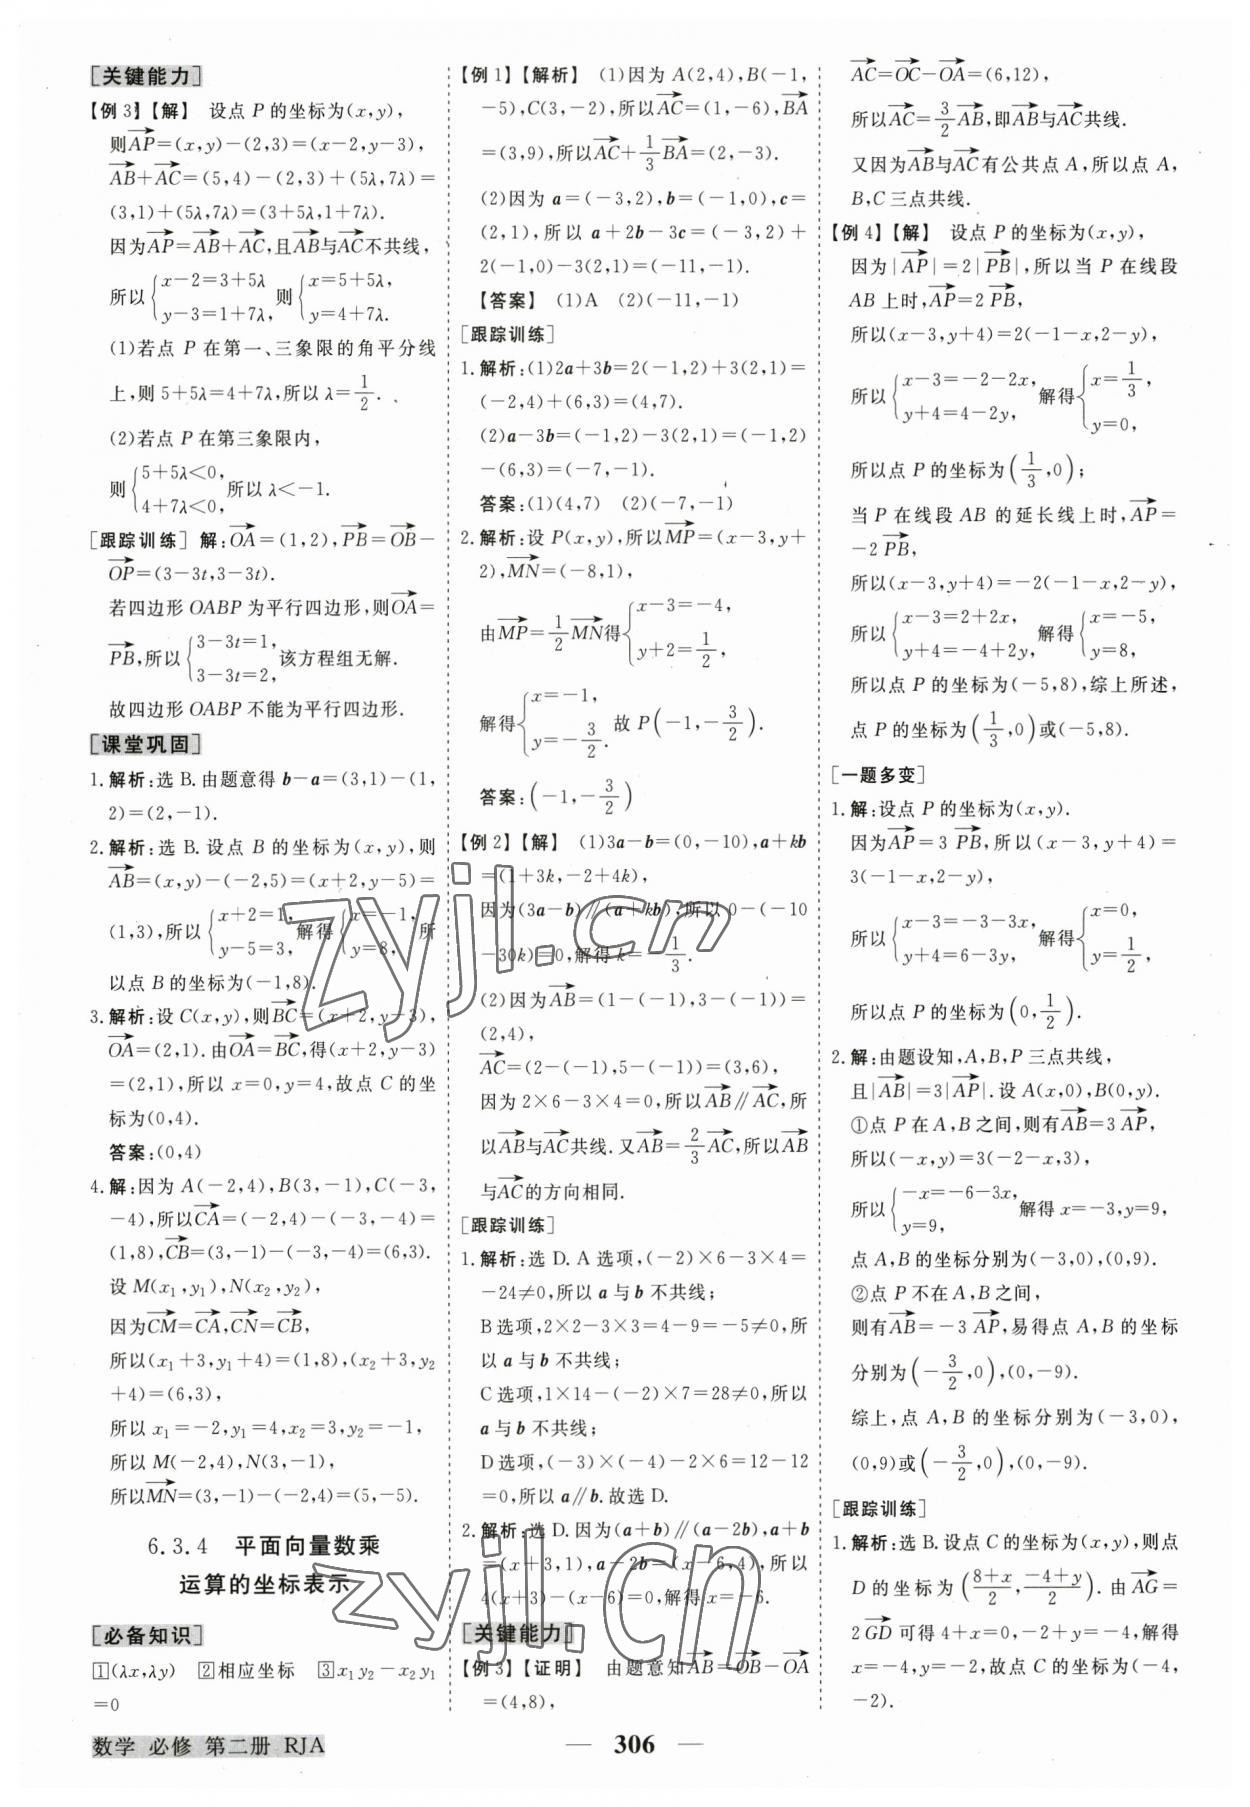 [关键能力]
【例 3】【解】 设点 P 的坐标为(x,y),
则AP→=(x,y)-(2,3)=(x-2,y-3),
AB→+AC→=(5,4)-(2,3)+(5λ,7λ)=
(3,1)+(5λ,7λ)=(3+5λ,1+7λ).
因为AP→=AB→+AC→,且AB→与AC→不共线,
所以{x-2=3+5λ, y-3=1+7λ, 则{x=5+5λ, y=4+7λ.
(1)若点 P 在第一、三象限的角平分线
上,则 5+5λ=4+7λ,所以 λ=1/2.
(2)若点 P 在第三象限内,
则{5+5λ<0, 4+7λ<0, 所以 λ<-1.
[跟踪训练] 解:OA→=(1,2),PB→=OB→-
OP→=(3-3t,3-3t).
若四边形 OABP 为平行四边形,则OA→=
PB→,所以{3-3t=1, 3-3t=2, 该方程组无解.
故四边形 OABP 不能为平行四边形.
[课堂巩固]
1.解析:选 B.由题意得 b-a=(3,1)-(1,
2)=(2,-1).
2.解析:选 B.设点 B 的坐标为(x,y),则
AB→=(x,y)-(-2,5)=(x+2,y-5)=
(1,3),所以{x+2=1, y-5=3, 解得{x=-1, y=8, 所
以点 B 的坐标为(-1,8).
3.解析:设 C(x,y),则BC→=(x+2,y-3),
OA→=(2,1).由OA→=BC→,得(x+2,y-3)
=(2,1),所以 x=0,y=4,故点 C 的坐
标为(0,4).
答案:(0,4)
4.解:因为 A(-2,4),B(3,-1),C(-3,
-4),所以CA→=(-2,4)-(-3,-4)=
(1,8),CB→=(3,-1)-(-3,-4)=(6,3).
设 M(x₁,y₁),N(x₂,y₂),
因为CM→=CA→,CN→=CB→,
所以(x₁+3,y₁+4)=(1,8),(x₂+3,y₂
+4)=(6,3),
所以 x₁=-2,y₁=4,x₂=3,y₂=-1,
所以 M(-2,4),N(3,-1),
所以MN→=(3,-1)-(-2,4)=(5,-5).
6.3.4 平面向量数乘
运算的坐标表示
[必备知识]
1(λx,λy) 2相应坐标 3x₁y₂-x₂y₁
=0
【例 1】【解析】 (1)因为 A(2,4),B(-1,
-5),C(3,-2),所以AC→=(1,-6),BA→
=(3,9),所以AC→+1/3BA→=(2,-3).
(2)因为 a=(-3,2),b=(-1,0),c=
(2,1),所以 a+2b-3c=(-3,2)+
2(-1,0)-3(2,1)=(-11,-1).
【答案】 (1)A (2)(-11,-1)
[跟踪训练]
1.解析:(1)2a+3b=2(-1,2)+3(2,1)=
(-2,4)+(6,3)=(4,7).
(2)a-3b=(-1,2)-3(2,1)=(-1,2)
-(6,3)=(-7,-1).
答案:(1)(4,7) (2)(-7,-1)
2.解析:设 P(x,y),所以MP→=(x-3,y+
2),MN→=(-8,1),
由MP→=1/2MN→得{x-3=-4, y+2=1/2,
解得{x=-1, y=-3/2. 故 P(-1,-3/2).
答案:(-1,-3/2)
【例 2】【解】 (1)3a-b=(0,-10),a+kb
=(1+3k,-2+4k),
因为(3a-b)∥(a+kb),所以 0-(-10
-30k)=0,解得 k=-1/3.
(2)因为AB→=(1-(-1),3-(-1))=
(2,4),
AC→=(2-(-1),5-(-1))=(3,6),
因为 2×6-3×4=0,所以AB→∥AC→,所
以AB→与AC→共线.又AB→=2/3AC→,所以AB→
与AC→的方向相同.
[跟踪训练]
1.解析:选 D.A 选项,(-2)×6-3×4=
-24≠0,所以 a 与 b 不共线;
B 选项,2×2-3×3=4-9=-5≠0,所
以 a 与 b 不共线;
C 选项,1×14-(-2)×7=28≠0,所以
a 与 b 不共线;
D 选项,(-3)×(-4)-2×6=12-12
=0,所以 a∥b.故选 D.
2.解析:选 D.因为(a+b)∥(a-2b),a+b
=(x+3,1),a-2b=(x-6,4),所以
4(x+3)-(x-6)=0,解得 x=-6.
[关键能力]
【例 3】【证明】 由题意知AB→=OB→-OA→
=(4,8),
AC→=OC→-OA→=(6,12),
所以AC→=3/2AB→,即AB→与AC→共线.
又因为AB→与AC→有公共点 A,所以点 A,
B,C 三点共线.
【例 4】【解】 设点 P 的坐标为(x,y),
因为|AP→|=2|PB→|,所以当 P 在线段
AB 上时,AP→=2 PB→,
所以(x-3,y+4)=2(-1-x,2-y),
所以{x-3=-2-2x, y+4=4-2y, 解得{x=1/3, y=0,
所以点 P 的坐标为(1/3,0);
当 P 在线段 AB 的延长线上时,AP→=
-2 PB→,
所以(x-3,y+4)=-2(-1-x,2-y),
所以{x-3=2+2x, y+4=-4+2y, 解得{x=-5, y=8,
所以点 P 的坐标为(-5,8),综上所述,
点 P 的坐标为(1/3,0)或(-5,8).
[一题多变]
1.解:设点 P 的坐标为(x,y).
因为AP→=3 PB→,所以(x-3,y+4)=
3(-1-x,2-y),
所以{x-3=-3-3x, y+4=6-3y, 解得{x=0, y=1/2,
所以点 P 的坐标为(0,1/2).
2.解:由题设知,A,B,P 三点共线,
且|AB→|=3|AP→|.设 A(x,0),B(0,y).
①点 P 在 A,B 之间,则有AB→=3 AP→,
所以(-x,y)=3(-2-x,3),
所以{-x=-6-3x, y=9, 解得 x=-3,y=9,
点 A,B 的坐标分别为(-3,0),(0,9).
②点 P 不在 A,B 之间,
则有AB→=-3 AP→,易得点 A,B 的坐标
分别为(-3/2,0),(0,-9).
综上,点 A,B 的坐标分别为(-3,0),
(0,9)或(-3/2,0),(0,-9).
[跟踪训练]
1.解析:选 B.设点 C 的坐标为(x,y),则点
D 的坐标为((8+x)/2,(-4+y)/2).由AG→=
2GD→可得 4+x=0,-2+y=-4,解得
x=-4,y=-2,故点 C 的坐标为(-4,
-2).
zyjl.cn
zyjl.cn
数学 必修 第二册 RJA
— 306 —